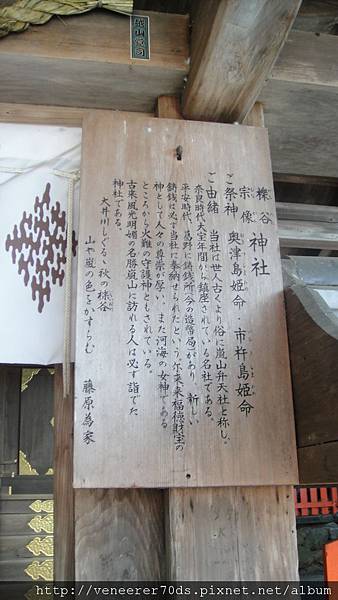 櫟谷
宗像 神社
ご祭神 奥津島姫命・市杵島姫命
ご由緒 当社は世人古くより俗に嵐山弁天社と称し。
奈良時代大宝年間から鎮座されている名社である。
平安時代、葛野に鋳銭所(今の造幣局)があり、新しい
鋳銭は必ず当社に奉納せられたという。尓来、来福徳財宝の
神として人々の尊崇が厚い。また河海の女神である
ところから水難の守護神ともされている。
古来、風光明媚の名勝嵐山に訪れる人は必ず詣でた
神社である。
大井川しぐるゝ秋の櫟谷
山や嵐の色をかすらむ
藤原為家
http://veneerer70ds.pixnet.net/album